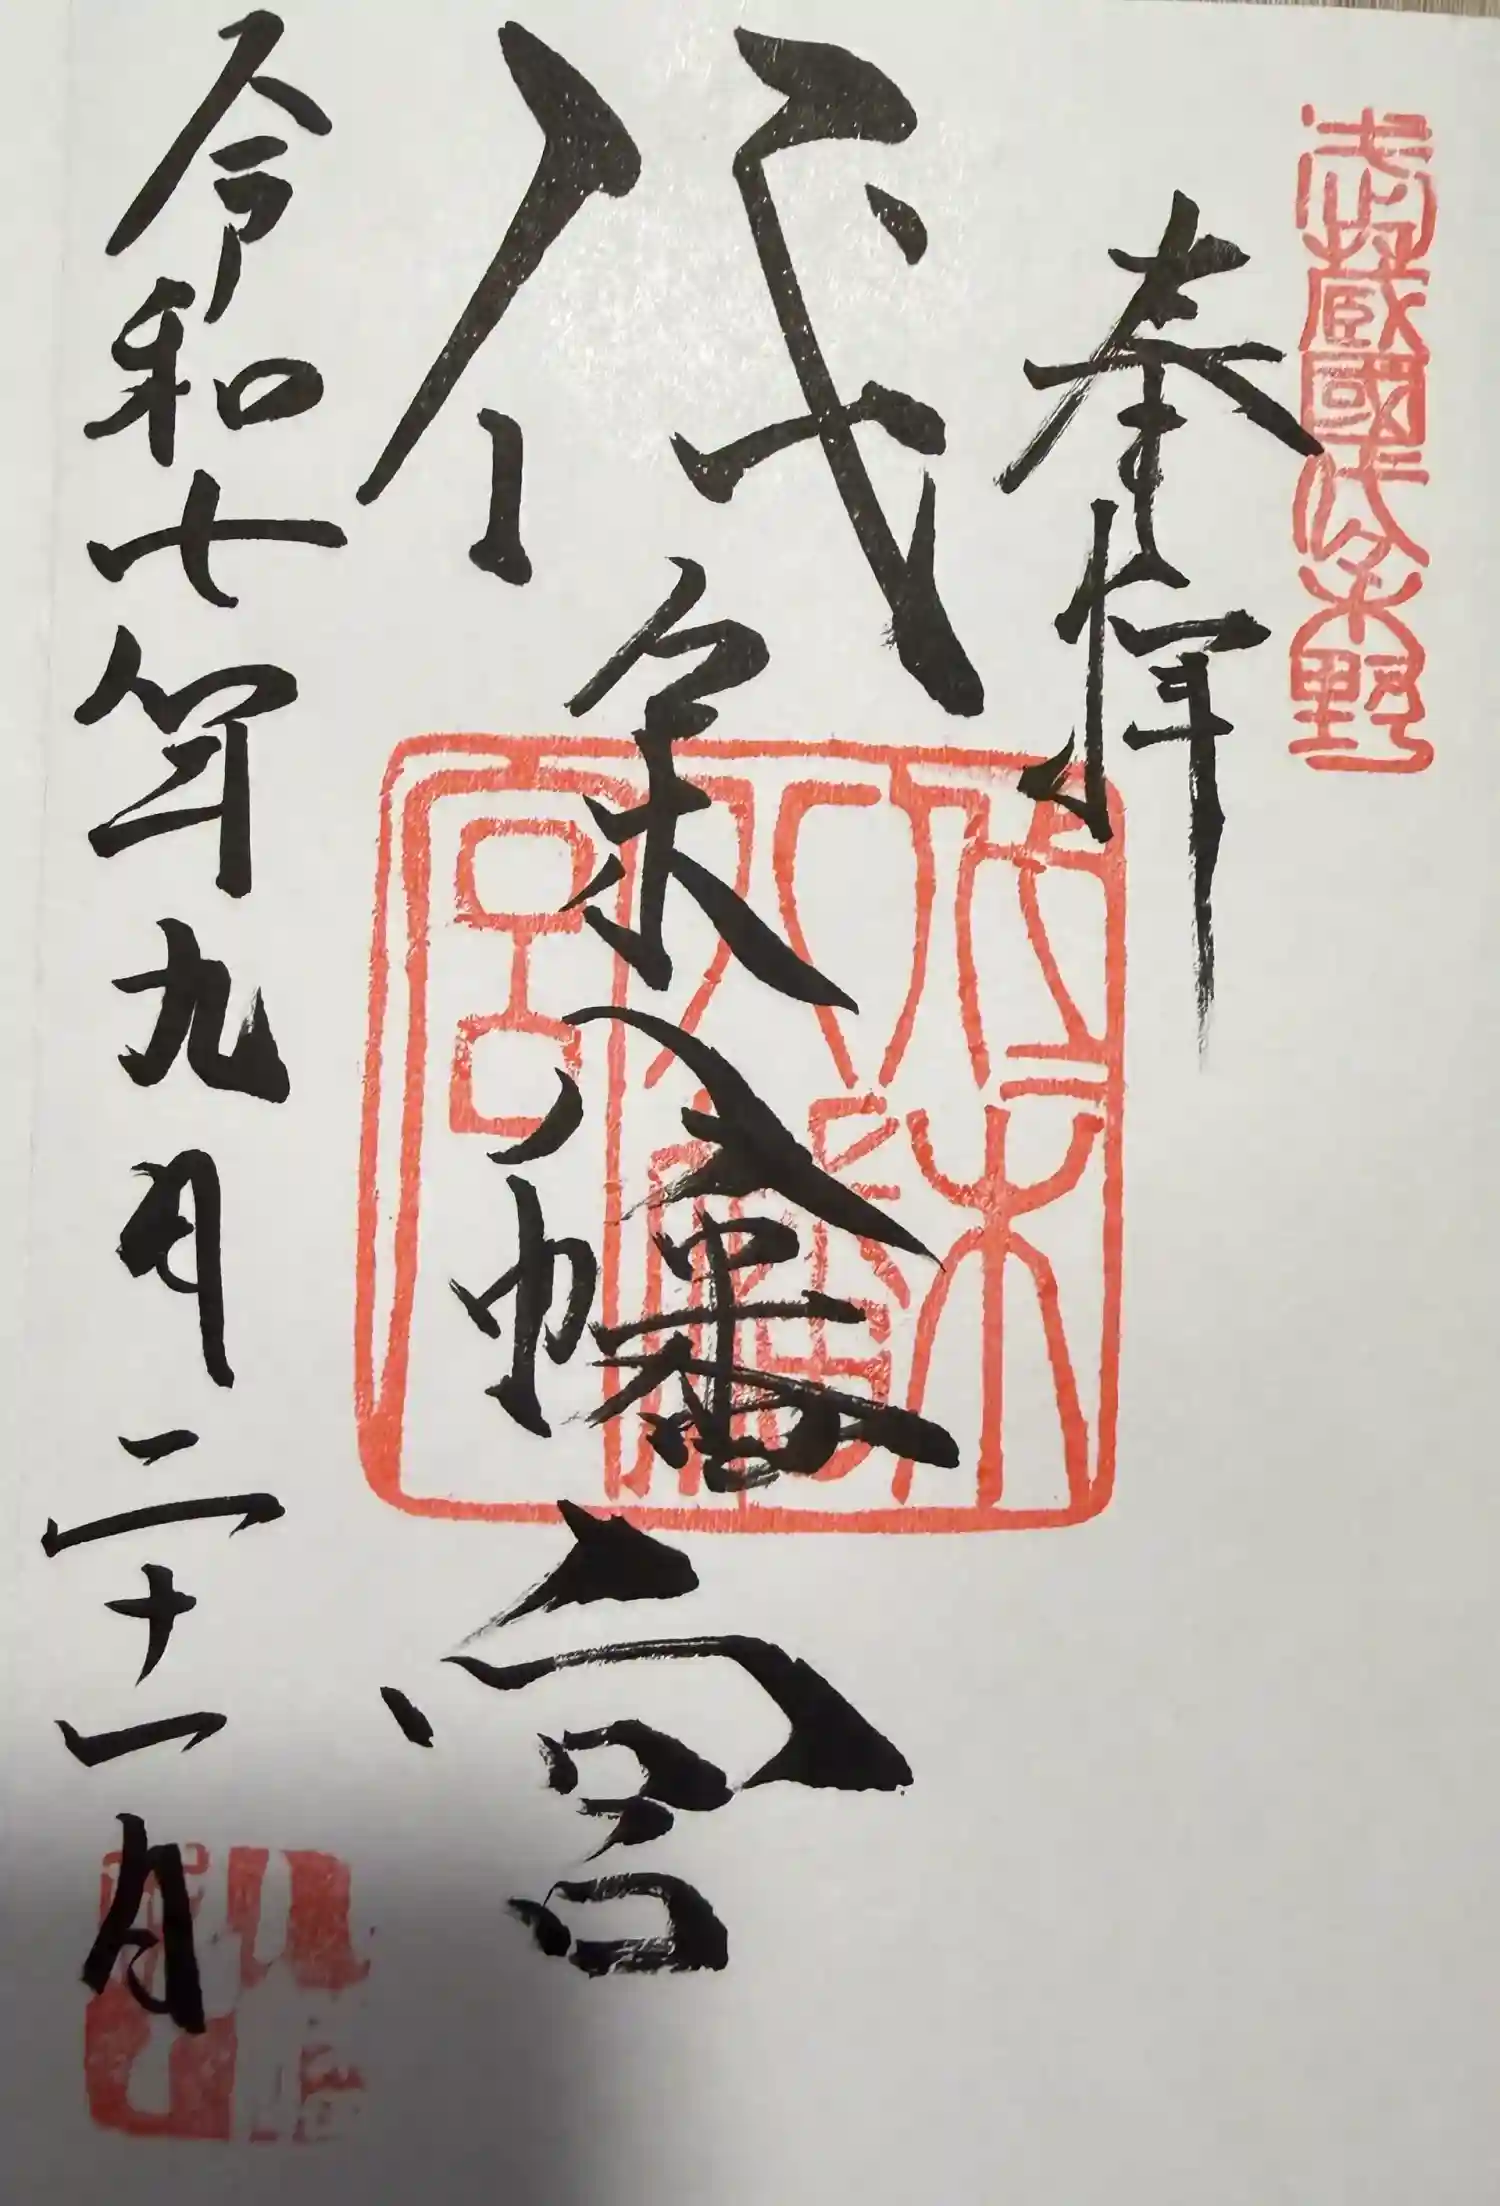 武蔵國代々木野
奉拝
代々木八幡宮
代々木八幡宮
令和七年九月二十一日